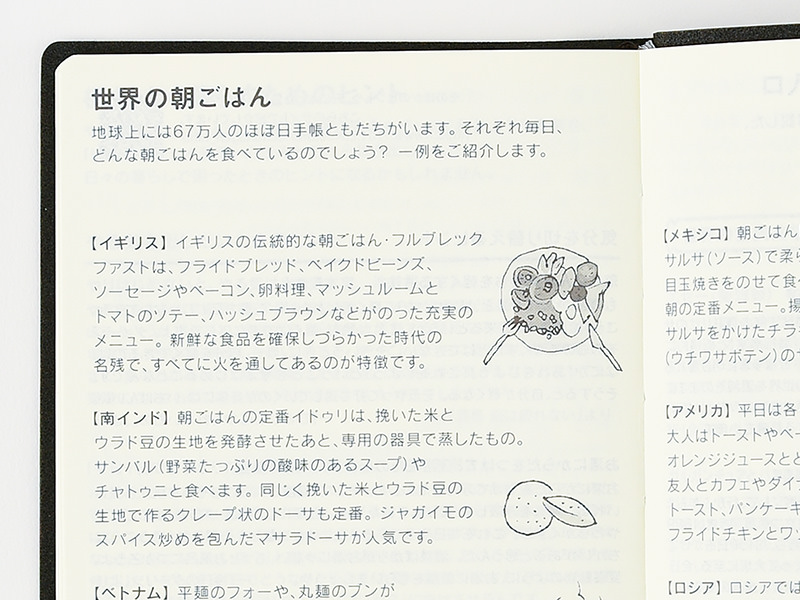 世界の朝ごはん
地球上には67万人のほぼ日手帳ともだちがいます。それぞれ毎日、
どんな朝ごはんを食べているのでしょう？ 一例をご紹介します。
【イギリス】 イギリスの伝統的な朝ごはん・フルブレック
ファストは、フライドブレッド、ベイクドビーンズ、
ソーセージやベーコン、卵料理、マッシュルームと
トマトのソテー、ハッシュブラウンなどがのった充実の
メニュー。新鮮な食品を確保しづらかった時代の
名残で、すべてに火を通してあるのが特徴です。
【南インド】 朝ごはんの定番イドゥリは、挽いた米と
ウラド豆の生地を発酵させたあと、専用の器具で蒸したもの。
サンバル（野菜たっぷりの酸味のあるスープ）や
チャトゥニと食べます。同じく挽いた米とウラド豆の
生地で作るクレープ状のドーサも定番。ジャガイモの
スパイス炒めを包んだマサラドーサが人気です。
【ベトナム】 平麺のフォーや、丸麺のブンが
【メキシコ】 朝ごはん
サルサ（ソース）で柔ら
目玉焼きをのせて食べ
朝の定番メニュー。揚
サルサをかけたチラ
（ウチワサボテン）の
【アメリカ】 平日は各
大人はトーストやベー
オレンジジュースとと
友人とカフェやダイナ
トースト、パンケーキ
フライドチキンとワッ
【ロシア】 ロシアでは